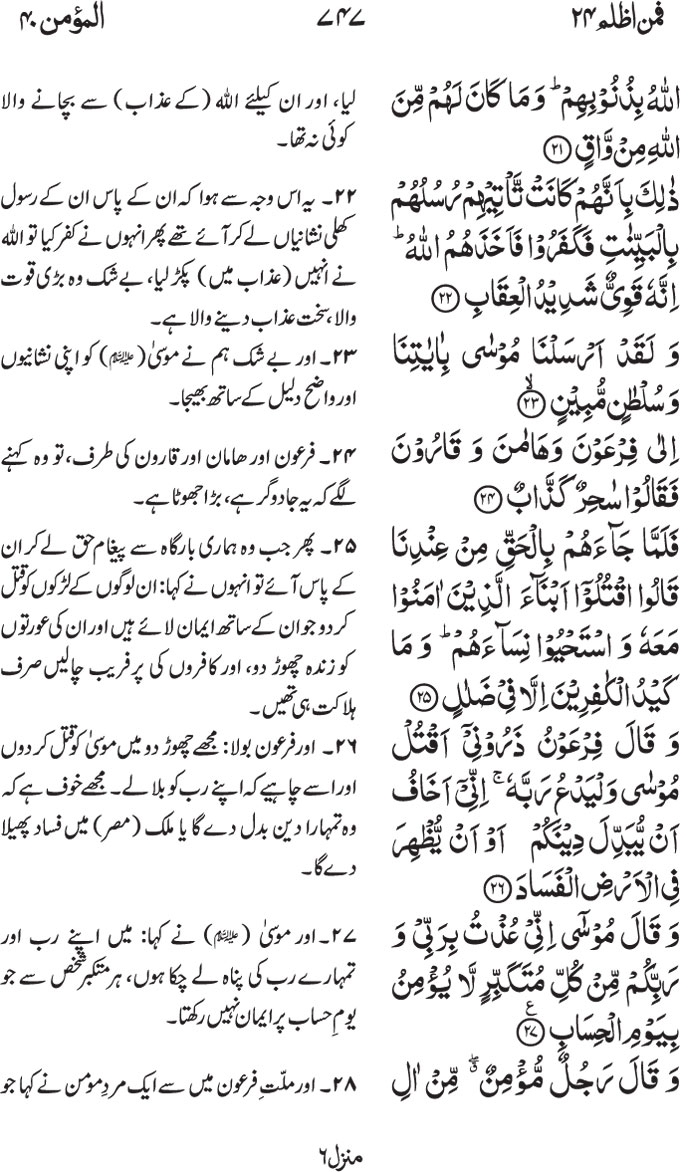 فمن اظلم ۲۴ ۷۴۷ المؤمن ۴۰
اللّٰهُ بِذُنُوْبِهِمْ ؕ وَ مَا كَانَ لَهُمْ مِّنَ
اللّٰهِ مِنْ وَّاقٍ ﴿۲۱﴾
ذٰلِكَ بِاَنَّهُمْ كَانَتْ تَّاْتِيْهِمْ رُسُلُهُمْ
بِالْبَيِّنٰتِ فَكَفَرُوْا فَاَخَذَهُمُ اللّٰهُ ؕ
اِنَّهٗ قَوِيٌّ شَدِيْدُ الْعِقَابِ ﴿۲۲﴾
وَ لَقَدْ اَرْسَلْنَا مُوْسٰى بِاٰيٰتِنَا
وَ سُلْطٰنٍ مُّبِيْنٍ ﴿ۙ۲۳﴾
اِلٰى فِرْعَوْنَ وَ هَامٰنَ وَ قَارُوْنَ
فَقَالُوْا سٰحِرٌ كَذَّابٌ ﴿۲۴﴾
فَلَمَّا جَآءَهُمْ بِالْحَقِّ مِنْ عِنْدِنَا
قَالُوا اقْتُلُوْۤا اَبْنَآءَ الَّذِيْنَ اٰمَنُوْا
مَعَهٗ وَ اسْتَحْيُوْا نِسَآءَهُمْ ؕ وَ مَا
كَيْدُ الْكٰفِرِيْنَ اِلَّا فِيْ ضَلٰلٍ ﴿۲۵﴾
وَ قَالَ فِرْعَوْنُ ذَرُوْنِيْۤ اَقْتُلْ
مُوْسٰى وَ لْيَدْعُ رَبَّهٗ ۚ اِنِّيْۤ اَخَافُ
اَنْ يُّبَدِّلَ دِيْنَكُمْ اَوْ اَنْ يُّظْهِرَ
فِي الْاَرْضِ الْفَسَادَ ﴿۲۶﴾
وَ قَالَ مُوْسٰۤى اِنِّيْ عُذْتُ بِرَبِّيْ وَ
رَبِّكُمْ مِّنْ كُلِّ مُتَكَبِّرٍ لَّا يُؤْمِنُ
بِيَوْمِ الْحِسَابِ ﴿۲۷﴾ ع
وَ قَالَ رَجُلٌ مُّؤْمِنٌ ۖۗ مِّنْ اٰلِ
لیا، اور ان کیلئے اللہ (کے عذاب) سے بچانے والا
کوئی نہ تھا۔
۲۲۔ یہ اس وجہ سے ہوا کہ ان کے پاس ان کے رسول
کھلی نشانیاں لے کر آئے تھے پھر انہوں نے کفر کیا تو اللہ
نے انہیں (عذاب میں) پکڑ لیا، بے شک وہ بڑی قوت
والا، سخت عذاب دینے والا ہے۔
۲۳۔ اور بے شک ہم نے موسیٰ (علیہ السلام) کو اپنی نشانیوں
اور واضح دلیل کے ساتھ بھیجا۔
۲۴۔ فرعون اور ھامان اور قارون کی طرف، تو وہ کہنے
لگے کہ یہ جادوگر ہے، بڑا جھوٹا ہے۔
۲۵۔ پھر جب وہ ہماری بارگاہ سے پیغامِ حق لے کر ان
کے پاس آئے تو انہوں نے کہا: ان لوگوں کے لڑکوں کو قتل
کر دو جو ان کے ساتھ ایمان لائے ہیں اور ان کی عورتوں
کو زندہ چھوڑ دو، اور کافروں کی پر فریب چالیں صرف
ہلاکت ہی تھیں۔
۲۶۔ اور فرعون بولا: مجھے چھوڑ دو میں موسیٰ کو قتل کر دوں
اور اسے چاہیے کہ اپنے رب کو بلا لے۔ مجھے خوف ہے کہ
وہ تمہارا دین بدل دے گا یا ملک (مصر) میں فساد پھیلا
دے گا۔
۲۷۔ اور موسیٰ (علیہ السلام) نے کہا: میں اپنے رب اور
تمہارے رب کی پناہ لے چکا ہوں، ہر متکبر شخص سے جو
یومِ حساب پر ایمان نہیں رکھتا۔
۲۸۔ اور ملّتِ فرعون میں سے ایک مردِ مومن نے کہا جو
منزل ۶